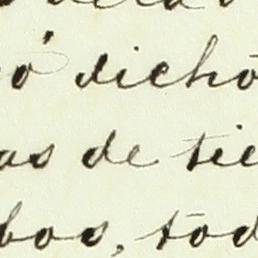 ó dichó
as de tie
bos, tod